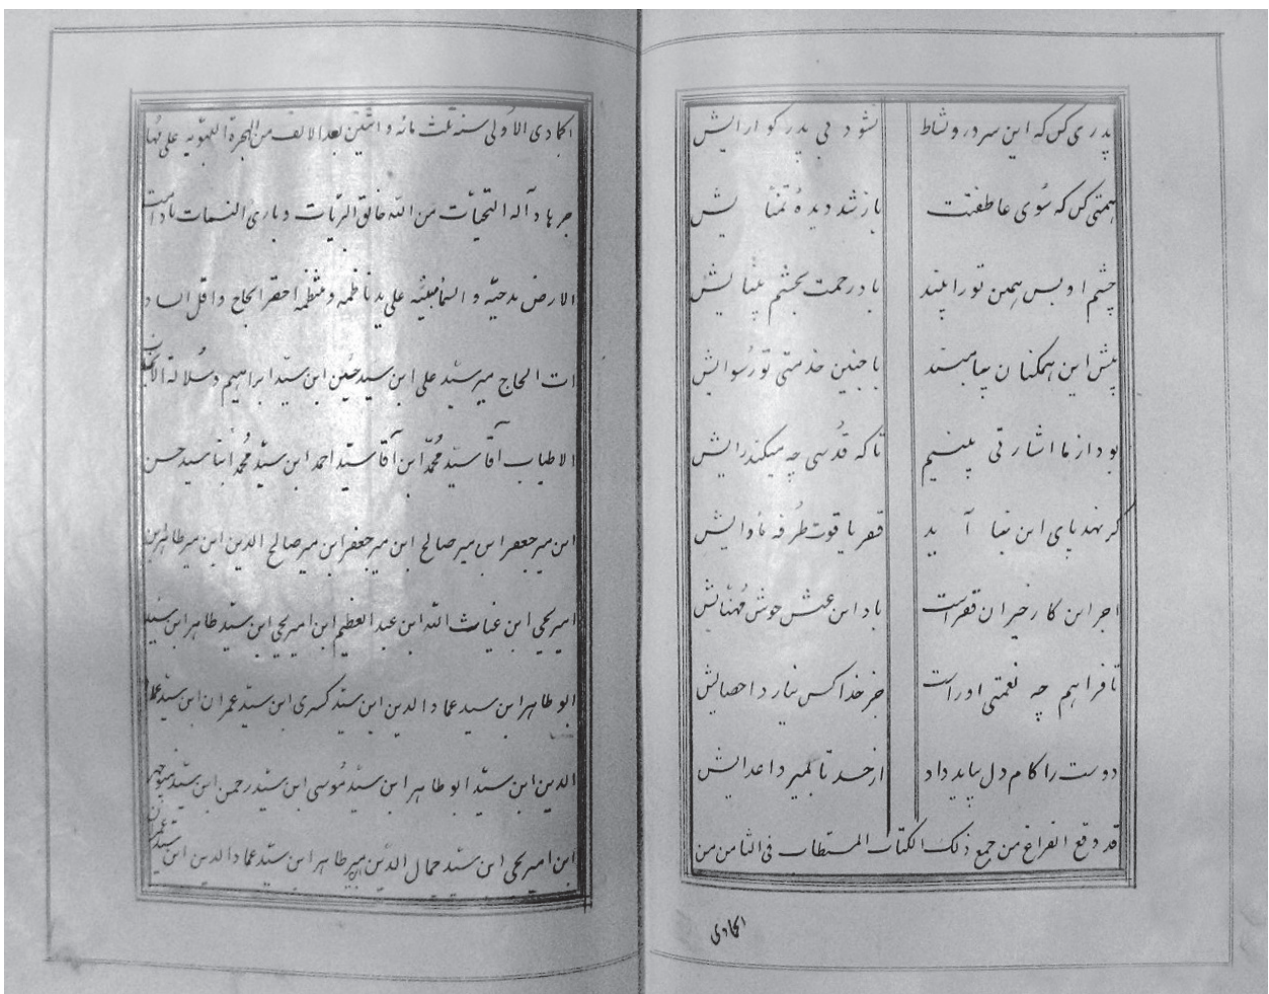 پدری کن که این سر در و نشاط نشود بی پدر کوارایش
همتی کن که سُوی عاطفتت باز شد دیدهٔ تمنّا یش
چشم او بس همین تو را بیند باد رحمت بچشم بینایش
پیش این همکنان بپا مپسند با چنین خدمتی تو رُسوایش
بود از ما اشارتی بینیم تا که قدُسی چه میکند رایش
گر نهد پای این بنا آید قصر یاقوت طُرفه مأوایش
اجر این کار خیر ان قصرست باد این عیش خوش مُهنّایش
تا فراهم چه نعمتی او راست جز خدا کس نیارد احصایش
دوست را کام دل بباید داد از حسد تا بمیرد اعدایش
قد وقع الفراغ من جمع ذلک الکتاب المستطاب فی الثامن من
الجمادی
الجمادی الاُولی سنه ثلث مائه و اثنین بعد الالف من الهجرة النبویه علی مُها
جرها و آله التحیّات من الله خالق البریّات و باری النسمات مادامت
الارض مدحیّه و السّما مبنیّه علی ید ناظمه و منظمه احقر الحاج و اقل الساد
ات الحاج میر سیّد علی ابن سید حُسَین ابن سیّد ابراهیم و سُلالة الانجاب
الاطیاب آقا سیّد مُحمّد ابن آقا سیّد احمد ابن سیّد مُحمّد ابنا سید حسن
ابن میر جعفر ابن میر صالح ابن میر جعفر ابن میر صالح الدین ابن میر طاهر ابن
امیر یحیی ابن غیاث الله ابن عبد العظیم ابن امیر یحیی ابن سیّد طاهر ابن سیّد
ابو طاهر ابن سید عماد الدین ابن سیّد کسری ابن سیّد عمران ابن سیّد عماد
الدین ابن سیّد ابو طاهر ابن سیّد مُوسی ابن سیّد رحمن ابن سیّد منوچهر
ابن امیر یحیی ابن سیّد جمال الدّین ابن میر طاهر ابن سیّد عماد الدین ابن سیّد عمران